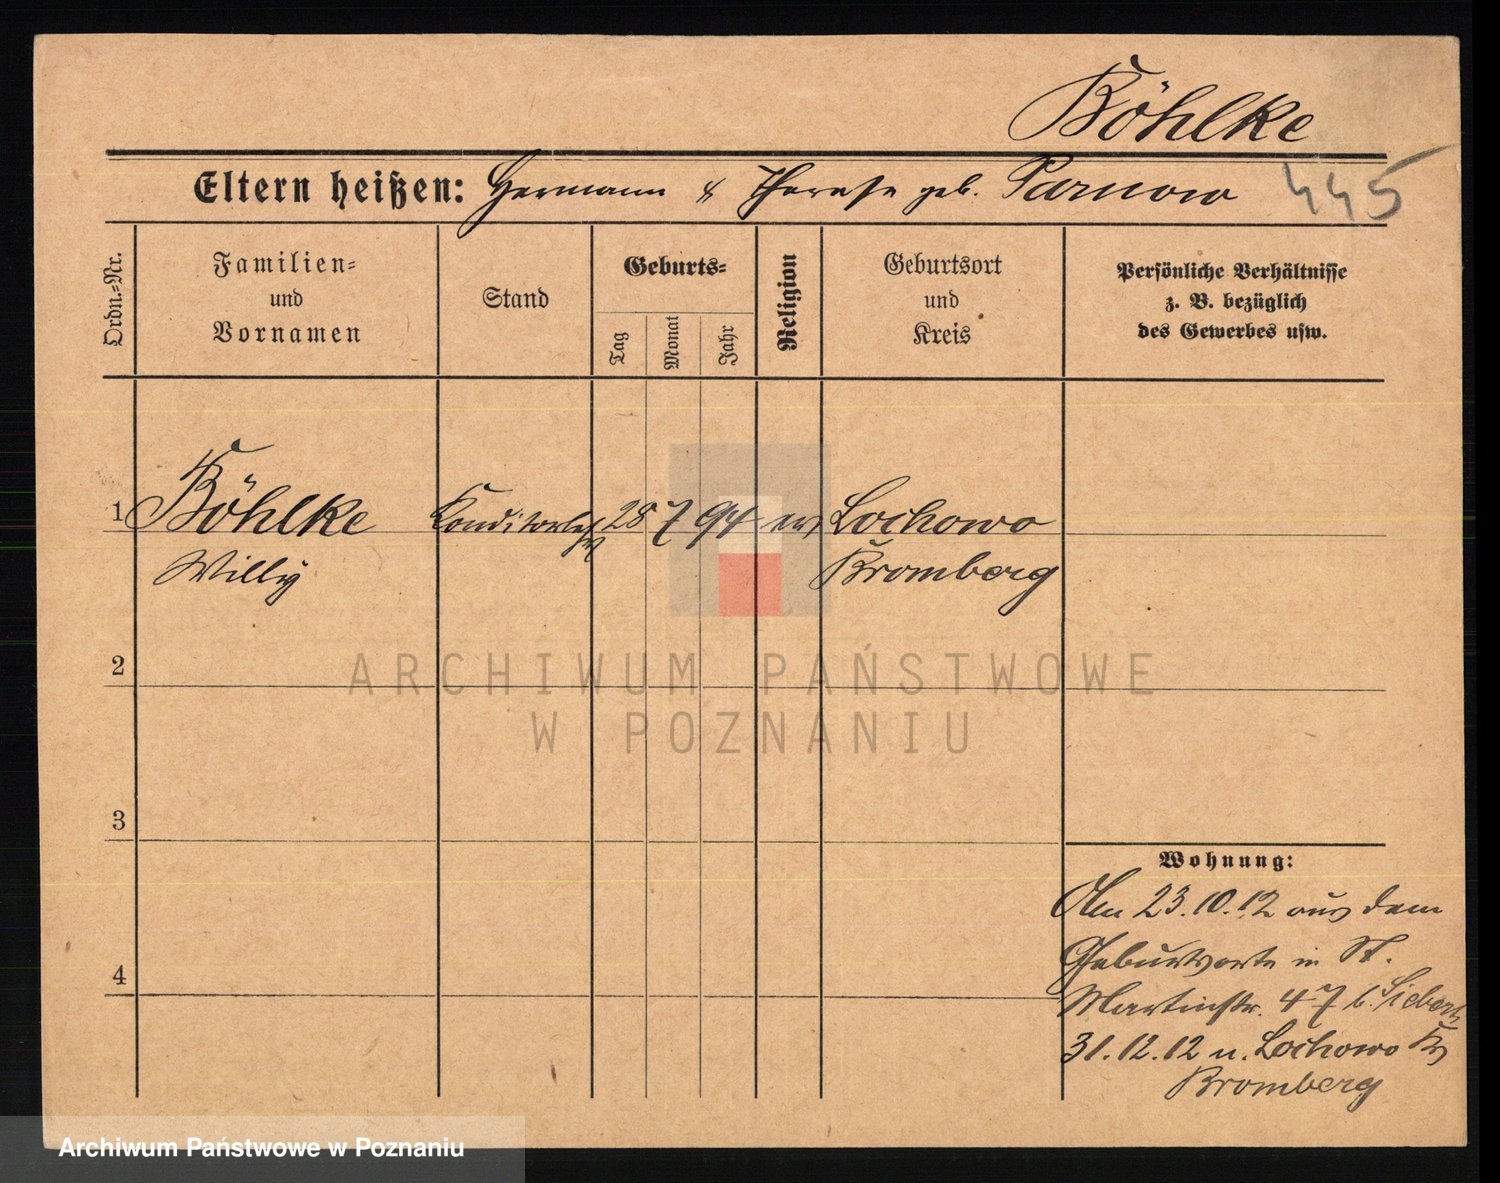 Böhlke
Eltern heißen: Hermann & Therese geb. Parnow
445
Ordn.=Nr.
Familien=
und
Vornamen
Stand
Geburts=
Tag
Monat
Jahr
Religion
Geburtsort
und
Kreis
Persönliche Verhältnisse
z. B. bezüglich
des Gewerbes usw.
1 Böhlke Conditorlehr 28 7 94 ev. Lochowo
Willy Bromberg
2
3
4
Wohnung:
Am 23.10.12 aus dem
Geburtsorte in St.
Martinstr. 47 b. Siebert
31.12.12 n. Lochowo Kr
Bromberg
ARCHIWUM PAŃSTWOWE
W POZNANIU
Archiwum Państwowe w Poznaniu